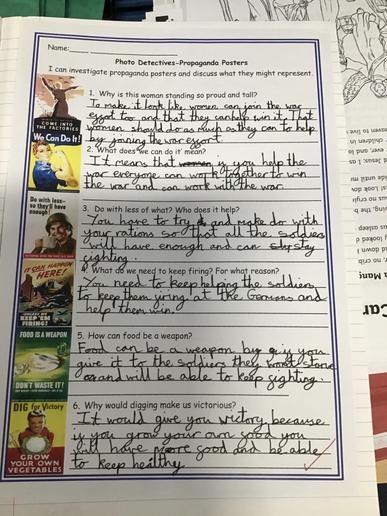 Name:
Photo Detectives-Propaganda Posters
I can investigate propaganda posters and discuss what they might represent.
COME INTO
THE FACTORIES
We Can Do It!
Do with less-
so they'll have
enough!
IT CAN HAPPEN
HERE!
KEEP 'EM
FIRING!
FOOD IS A WEAPON
DON'T WASTE IT!
DIG for Victory
GROW
YOUR OWN
VEGETABLES
1. Why is this woman standing so proud and tall?
To make it look like women can join the war
effot too and that they can help win it. That
women should do as much as they can to help
by joining the war effort.
2. What does we can do it' mean?
It means that women if you help the
war everyone can work together to win
the war and can work with the war.
3. Do with less of what? Who does it help?
You have to try & and make do with
your rations so that all the soldiers
will have enough and can stay
fighting.
4. What do we need to keep firing? For what reason?
You need to keep helping the soldiers
to keep them firing at the Germans and
help them win.
5. How can food be a weapon?
Food can be a weapon by if you
give it to the soldiers they wont starve
and will be able to keep fighting.
6. Why would digging make us victorious?
It would give you victory because
if you grow your own food you
will have more food and be able
to keep healthy